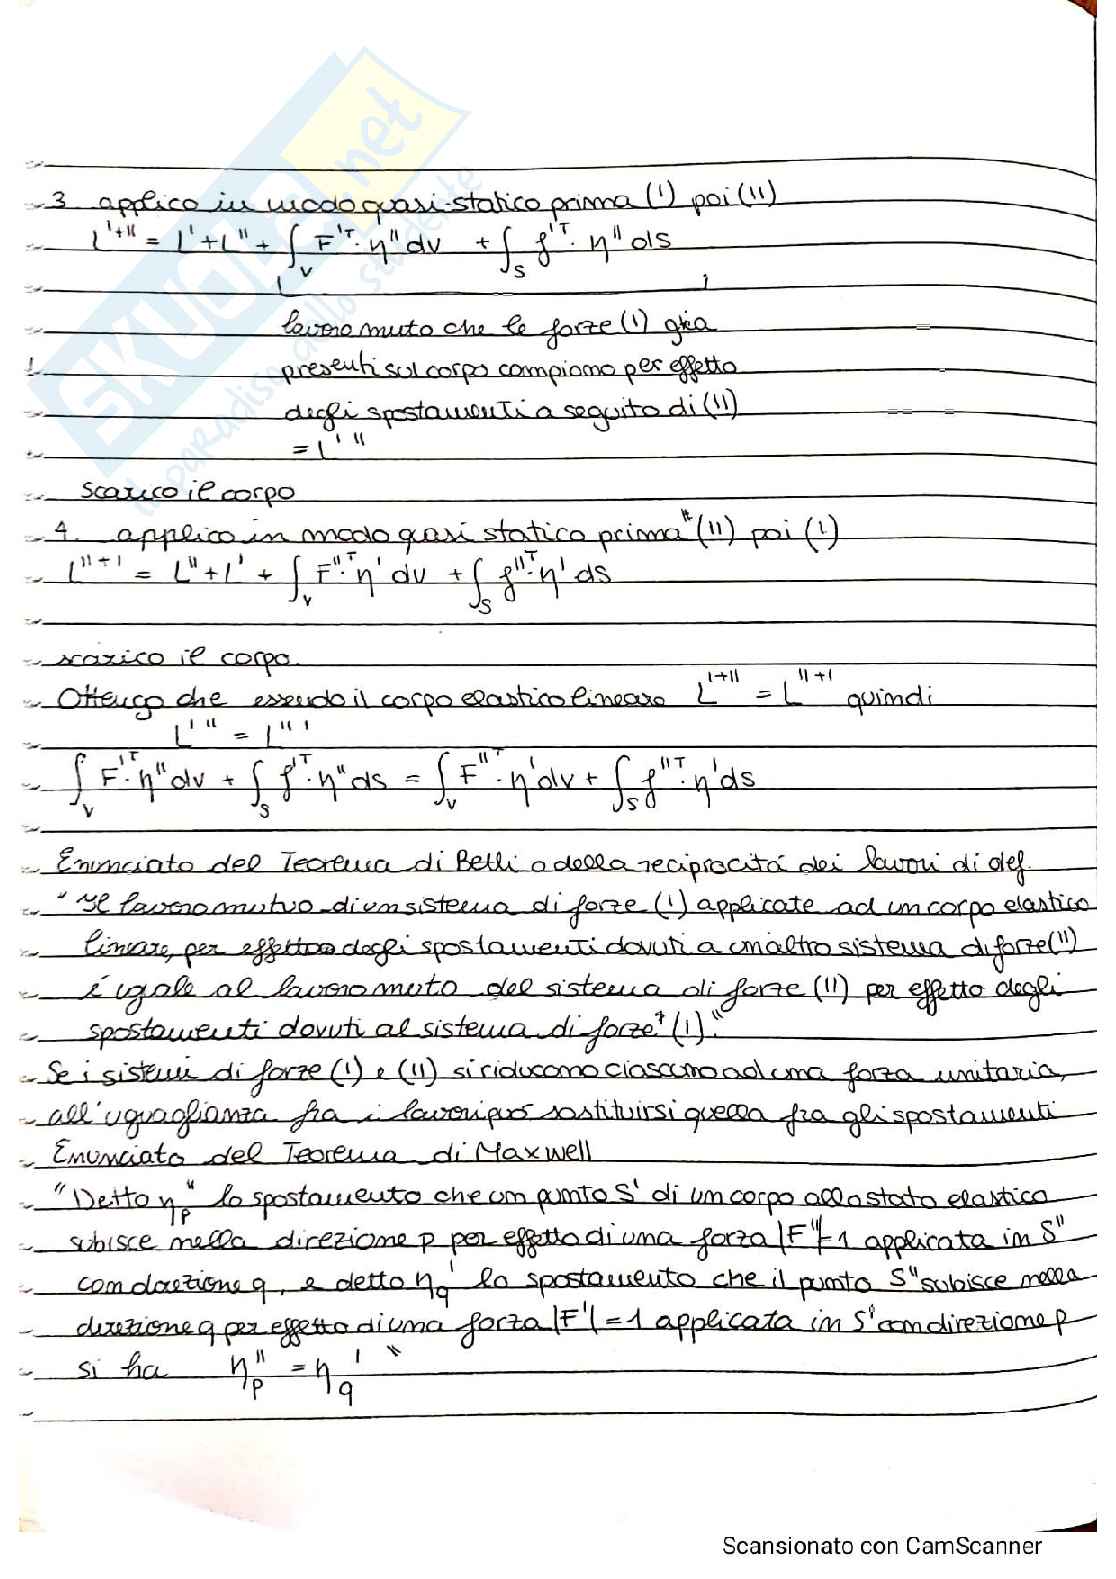 3 applico in modo quasi-statico prima (I) poi (II)
L'⁺" = L' + L" + ∫_V F'ᵀ · η" dv + ∫_S f'ᵀ · η" ds
lavoro mutuo che le forze (I) già
presenti sul corpo compiono per effetto
degli spostamenti a seguito di (II)
= L' "
scarico il corpo
4. applico in modo quasi statico prima (II) poi (I)
L"⁺' = L" + L' + ∫_V F"ᵀ · η' dv + ∫_S f"ᵀ · η' ds
scarico il corpo
Ottengo che essendo il corpo elastico lineare L'⁺" = L"⁺' quindi
L' " = L" '
∫_V F'ᵀ · η" dv + ∫_S f'ᵀ · η" ds = ∫_V F"ᵀ · η' dv + ∫_S f"ᵀ · η' ds
Enunciato del Teorema di Betti o della reciprocità dei lavori di def.
"Il lavoro mutuo di un sistema di forze (I) applicate ad un corpo elastico
lineare, per effetto degli spostamenti dovuti a un altro sistema di forze (II)
è uguale al lavoro mutuo del sistema di forze (II) per effetto degli
spostamenti dovuti al sistema di forze (I)."
Se i sistemi di forze (I) e (II) si riducono ciascuno ad una forza unitaria,
all'uguaglianza fra i lavori può sostituirsi quella fra gli spostamenti
Enunciato del Teorema di Maxwell
"Detto ηp" lo spostamento che un punto S' di un corpo allo stato elastico
subisce nella direzione p per effetto di una forza |F"|=1 applicata in S"
con direzione q, e detto ηq' lo spostamento che il punto S" subisce nella
direzione q per effetto di una forza |F'|=1 applicata in S' con direzione p
si ha ηp" = ηq' "
SKUOLA.net
il paradiso dello studente
Scansionato con CamScanner